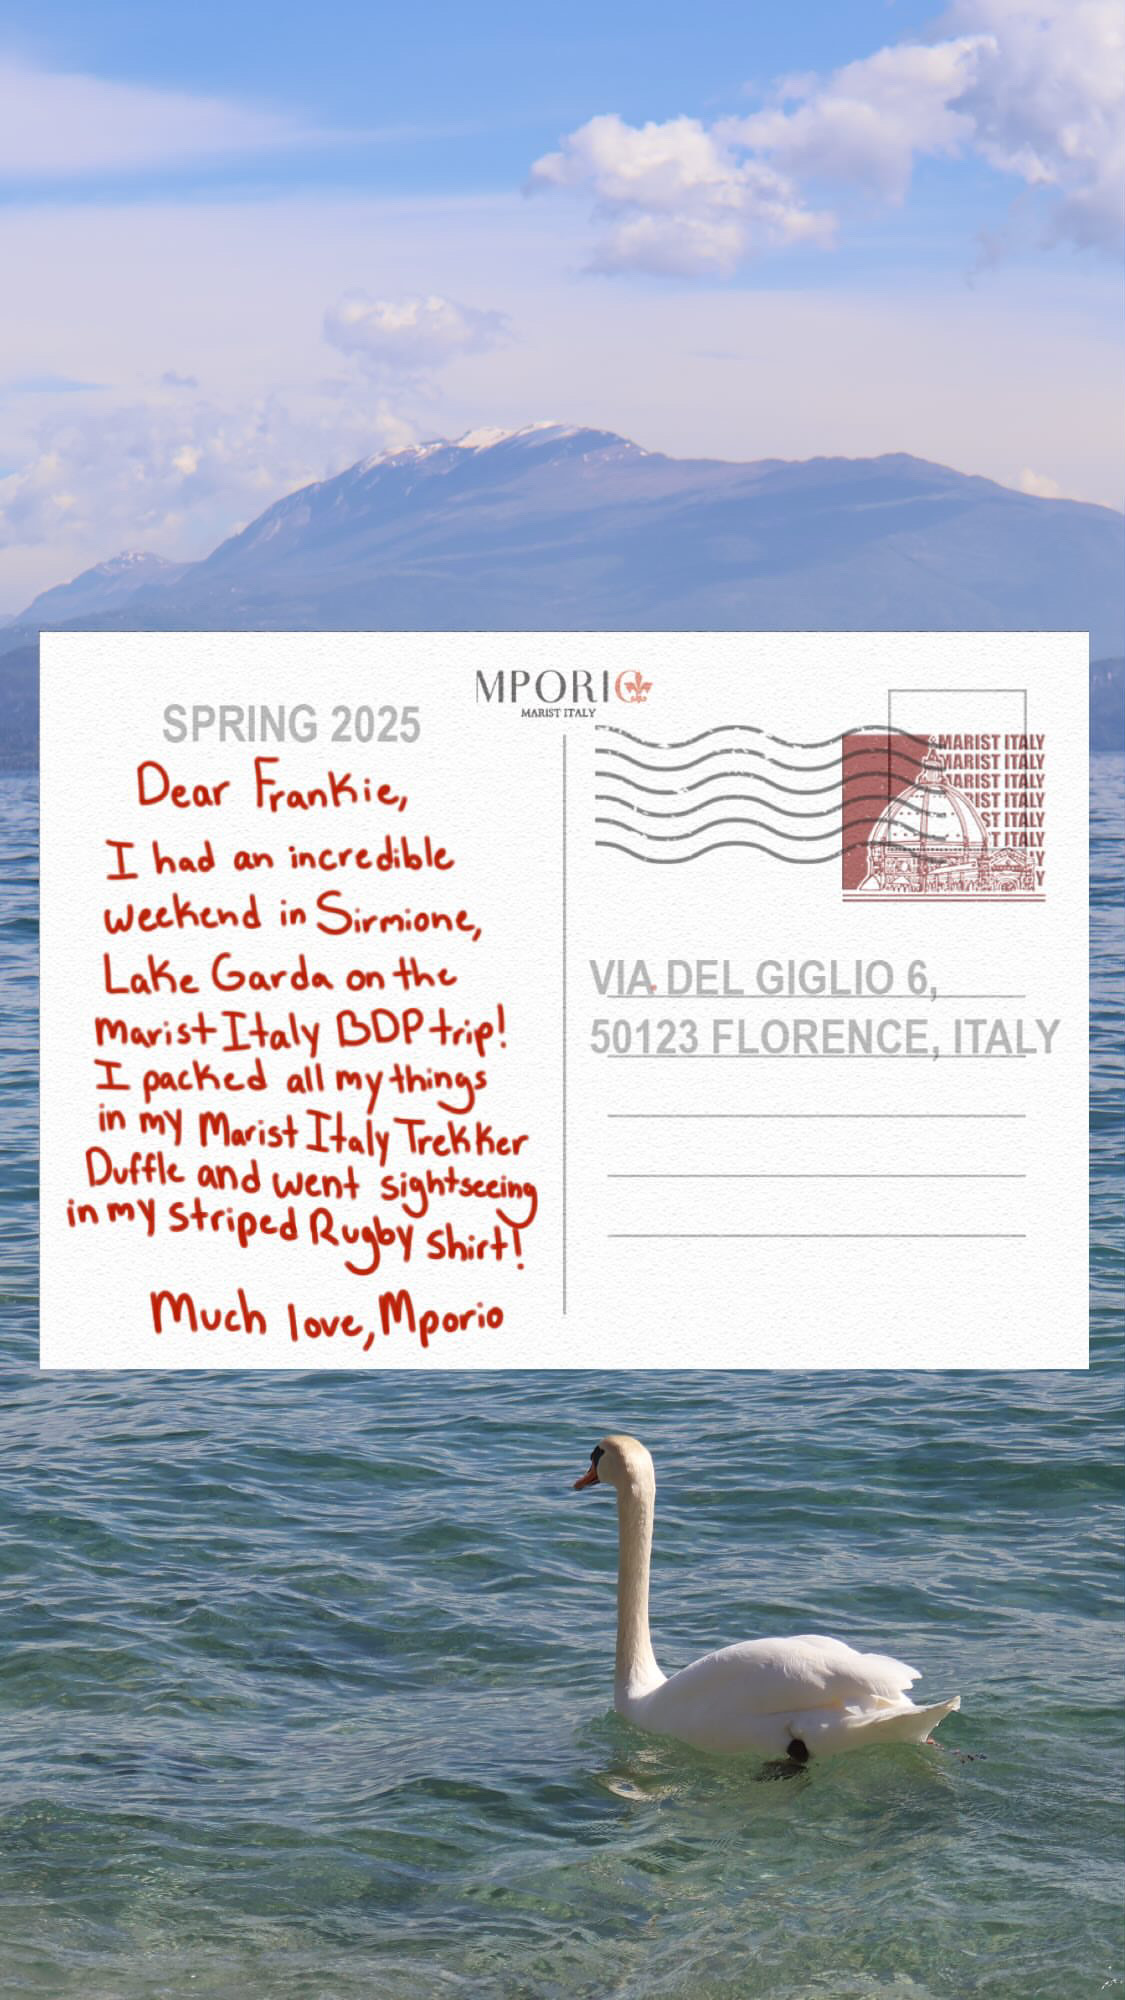 MPORIO
MARIST ITALY
SPRING 2025
Dear Frankie,
I had an incredible
weekend in Sirmione,
Lake Garda on the
Marist Italy BDP trip!
I packed all my things
in my Marist Italy Trekker
Duffle and went sightseeing
in my striped Rugby shirt!
Much love, Mporio
MARIST ITALY
MARIST ITALY
MARIST ITALY
RIST ITALY
ST ITALY
T ITALY
Y
Y
VIA DEL GIGLIO 6,
50123 FLORENCE, ITALY